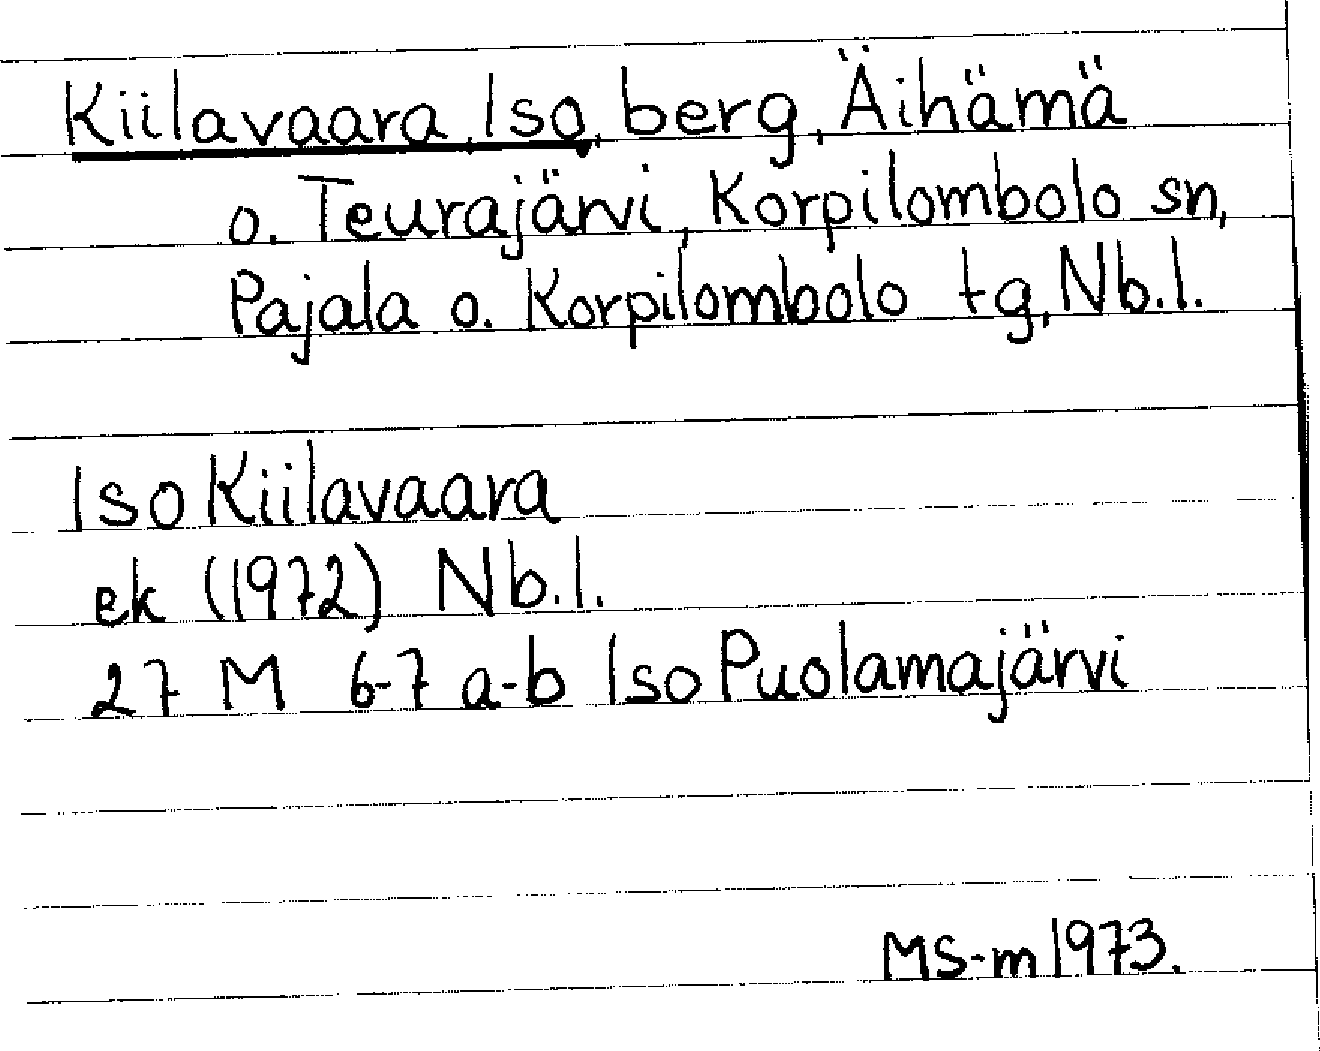 Kiilavaara, Iso, berg, Äihämä
o. Teurajärvi, Korpilombolo sn,
Pajala o. Korpilombolo tg, Nb.l.
Iso Kiilavaara
ek (1972) Nb.l.
27 M 6-7 a-b Iso Puolamajärvi
MS-m 1973.